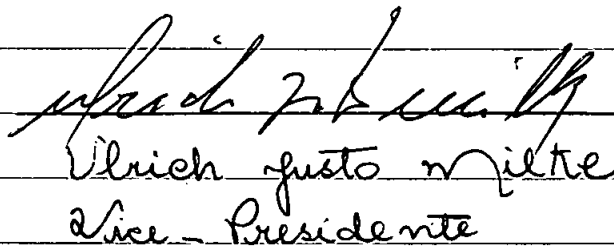 Ulrich Justo Milke
Vice-Presidente